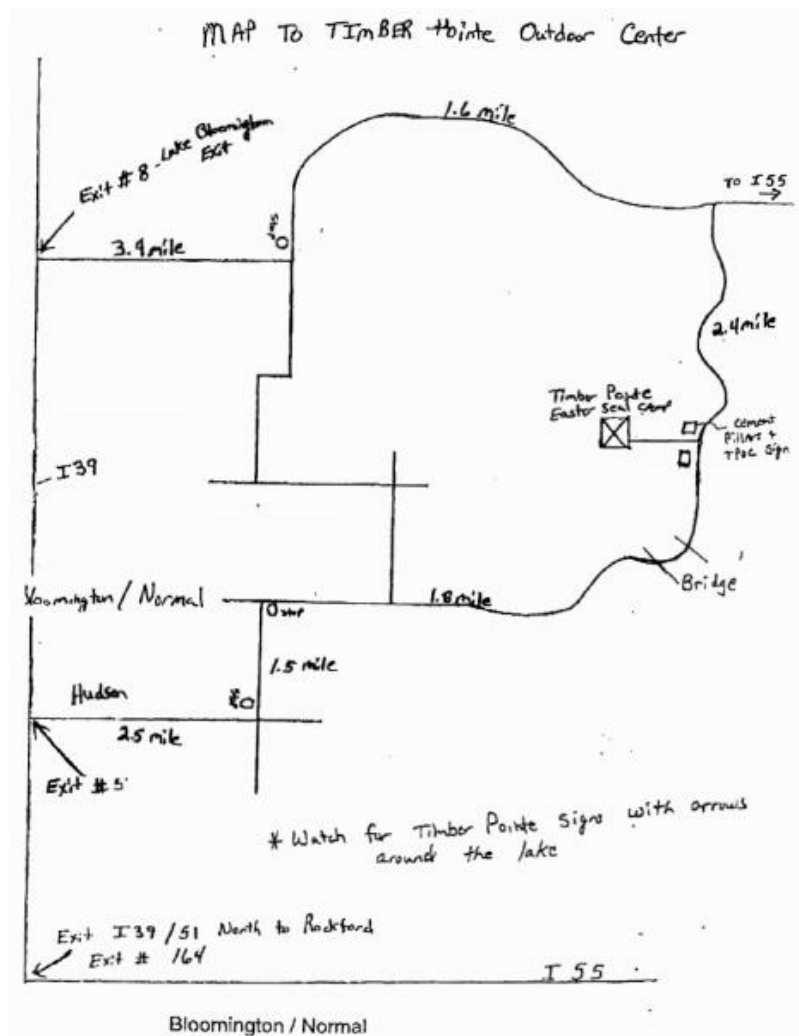 MAP TO TIMBER Pointe Outdoor Center
1.6 mile
Exit # 8 - Lake Bloomington
Exit
TO I 55
Stop
3.9 mile
2.4 mile
Timber Pointe
Easter Seal Camp
Cement
Pillars +
TPOC Sign
I 39
Bloomington / Normal
1.8 mile
Bridge
Stop
1.5 mile
Hudson
2.5 mile
Exit # 5
* Watch for Timber Pointe Signs with arrows
around the lake
Exit I39 / 51 North to Rockford
Exit # 164
I 55
Bloomington / Normal